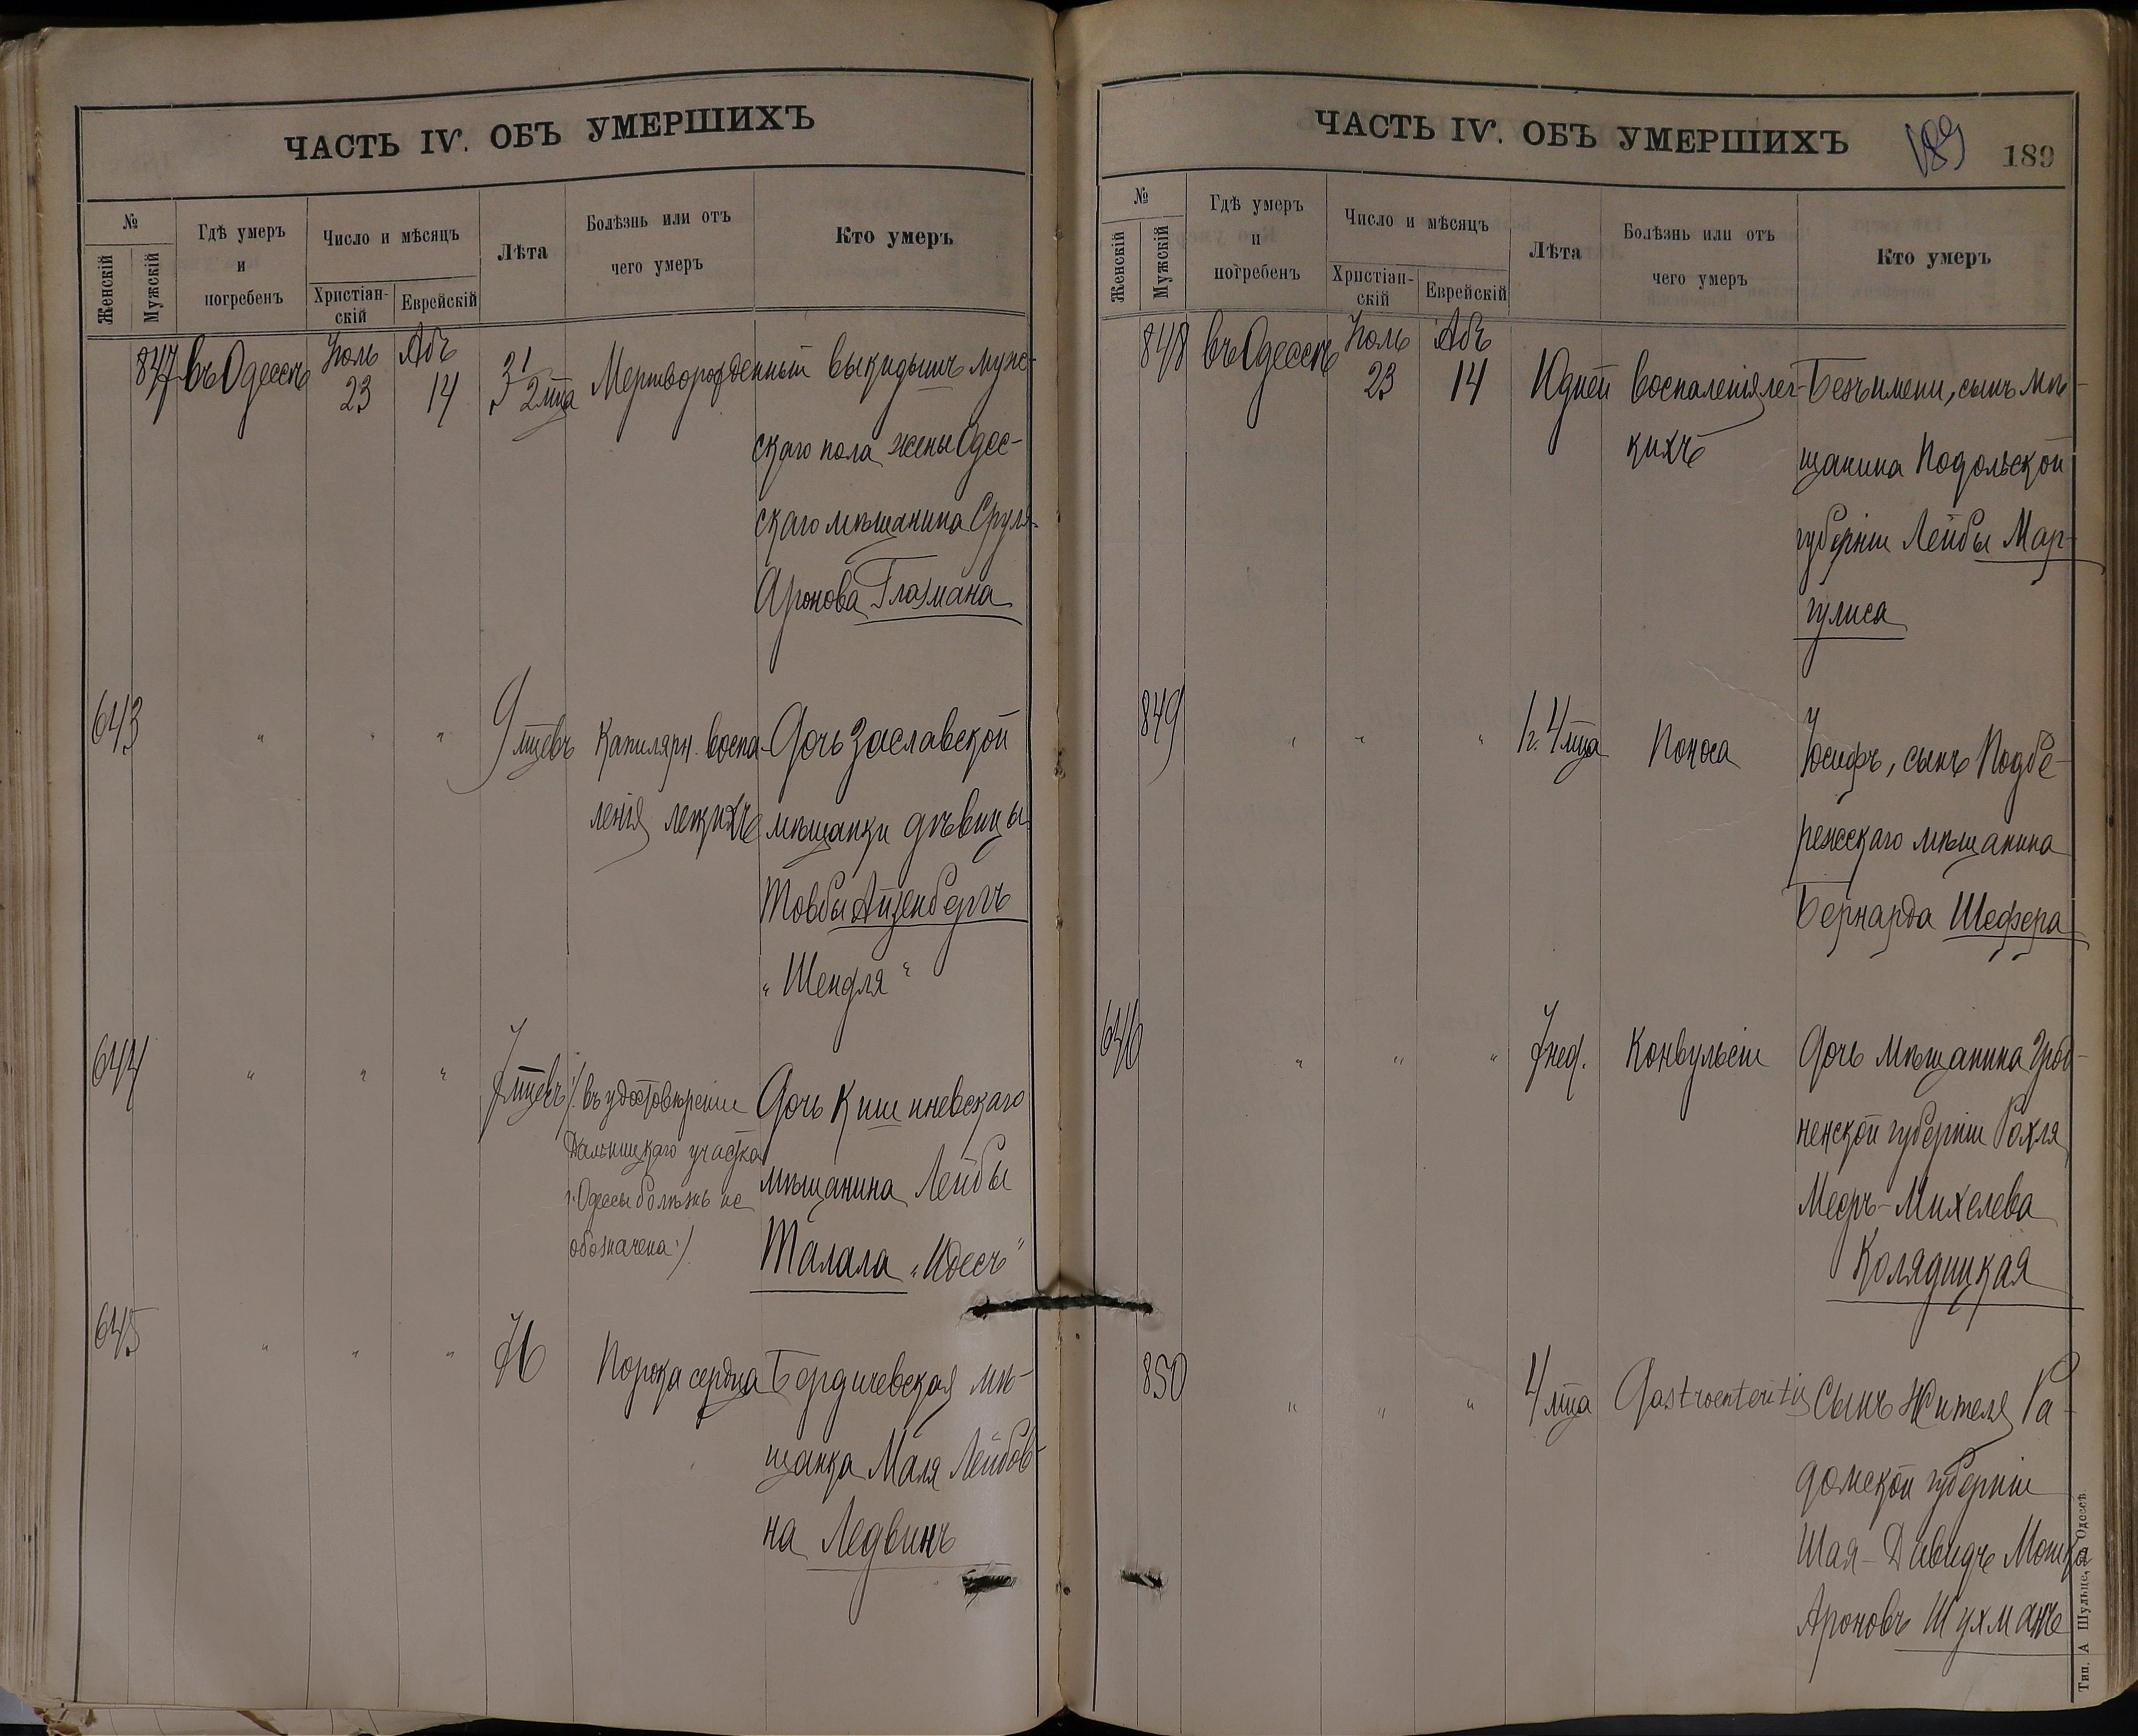 ЧАСТЬ IV. ОБЪ УМЕРШИХЪ
№
Женскій
Мужскій
Гдѣ умеръ
и
погребенъ
Число и мѣсяцъ
Христіан-
скій
Еврейскій
Лѣта
Болѣзнь или отъ
чего умеръ
Кто умеръ
847 въ Одессѣ Іюль 23 Абъ 14 Мертворожденный выкидышъ муж-
скаго пола жены Одес-
скаго мѣщанина Сруля
Аронова Глазмана
643 " " " 9 мцевъ Капилярн. воспа- Дочь Заславской
ленія легкихъ мѣщанки дѣвицы
Товбы Айзенбергъ
"Шендля"
644 " " " 7 мцевъ /:въ удостовѣреніи Дочь Кишиневскаго
Дальницкаго участка
г. Одессы болѣзнь не мѣщанина Лейбы
обозначена:/ Талала "Идесъ"
645 " " " 76 Порока сердца Бердичевская мѣ-
щанка Маля Лейбов-
на Ледвинъ
ЧАСТЬ IV. ОБЪ УМЕРШИХЪ
189
189
№
Женскій
Мужскій
Гдѣ умеръ
и
погребенъ
Число и мѣсяцъ
Христіан-
скій
Еврейскій
Лѣта
Болѣзнь или отъ
чего умеръ
Кто умеръ
848 въ Одессѣ Іюль 23 Абъ 14 10 дней воспаленія лег- Безъ имени, сынъ мѣ-
кихъ щанина Подольской
губерніи Лейбы Мар-
гулиса
849 " " " 1 г. 4 мца Поноса Іосифъ, сынъ Подбе-
режскаго мѣщанина
Бернарда Шефера
646 " " " 7 нед. Конвульсіи Дочь мѣщанина Грод-
ненской губерніи Рохля
Мееръ-Михелева
Колядицкая
850 " " " 4 мца Gastroenteritis Сынъ Жителя Ра-
домской губерніи
Шая-Давидъ Мошко
Ароновъ Шухманъ
Тип. А Шульце, въ Одессѣ.